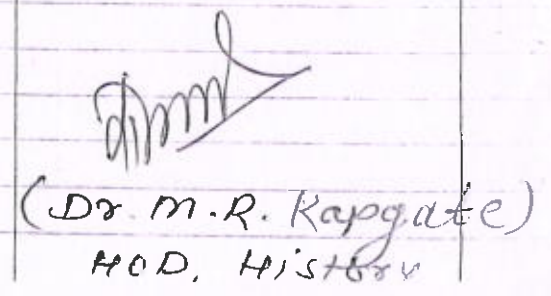 (Dr. M.R. Kapgate)
HOD, History